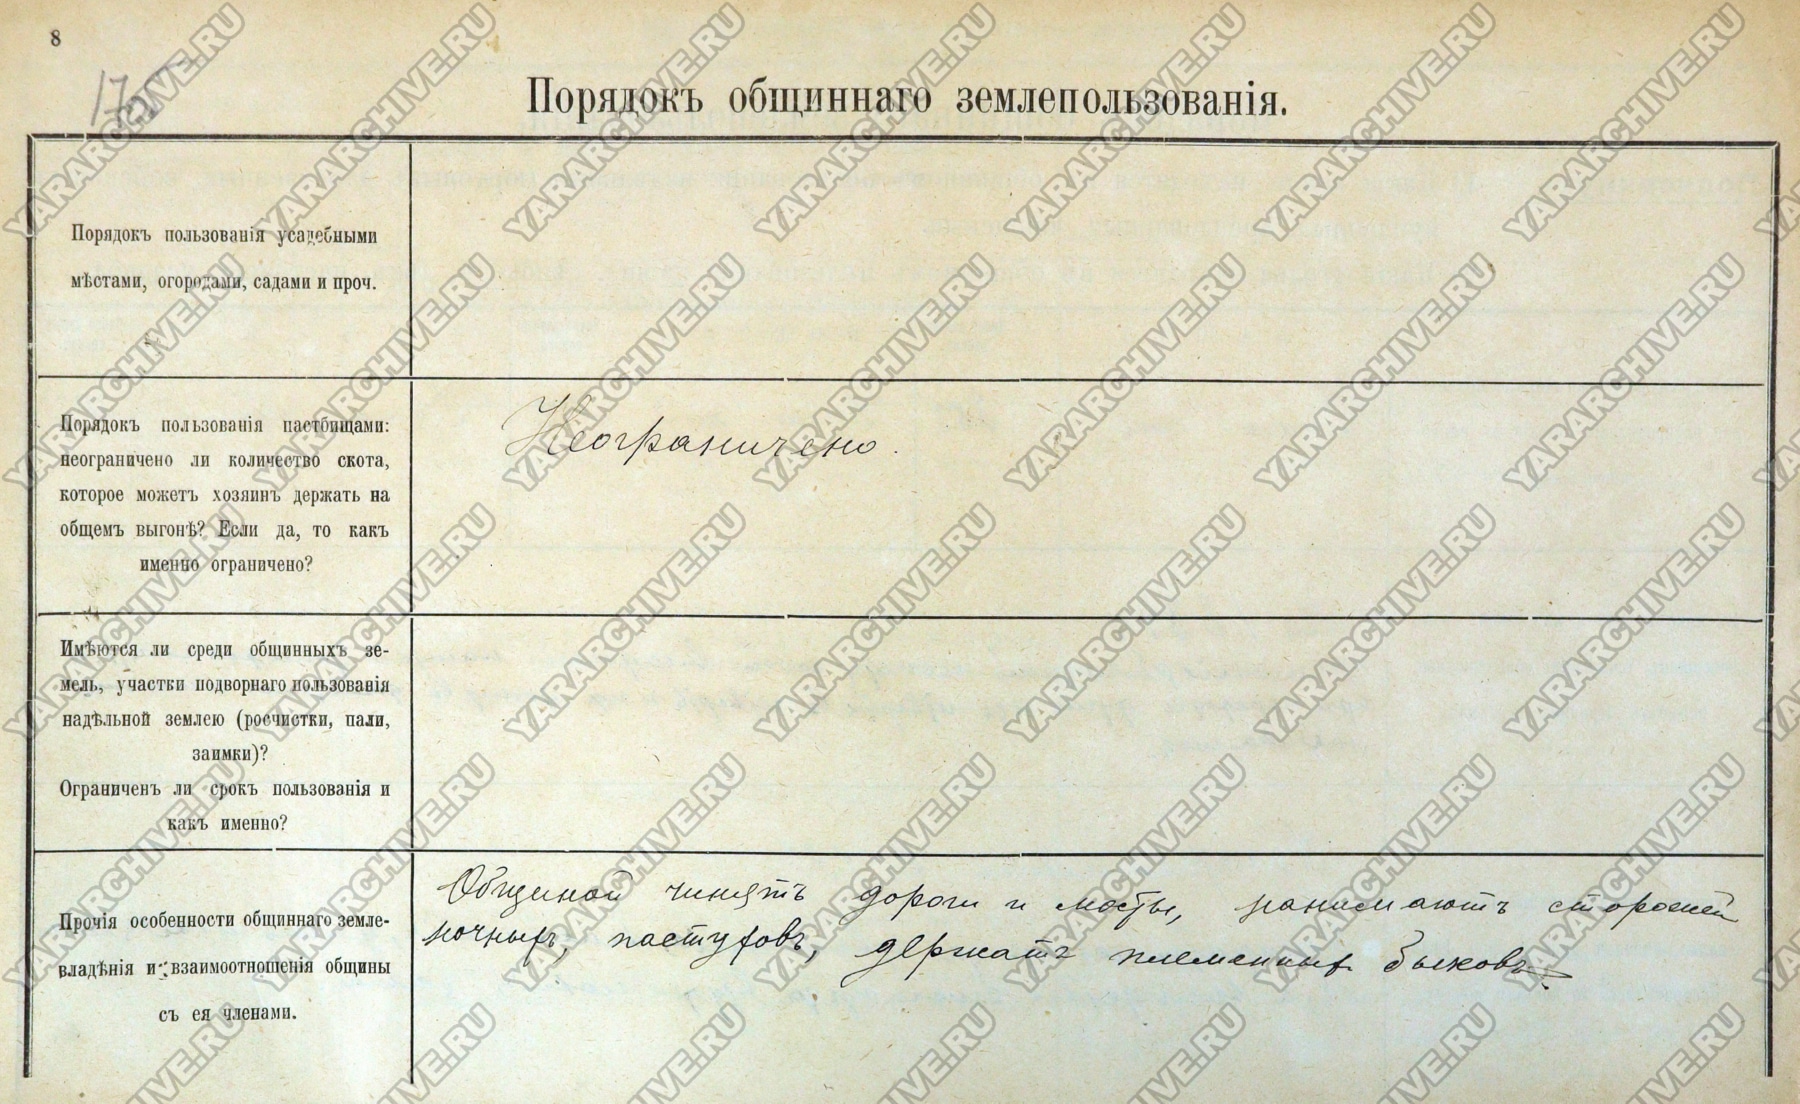 8
Порядокъ общиннаго землепользованія.
Порядокъ пользованія усадебными
мѣстами, огородами, садами и проч.
Порядокъ пользованія пастбищами:
неограничено ли количество скота,
которое можетъ хозяинъ держать на
общемъ выгонѣ? Если да, то какъ
именно ограничено?
Неограничено.
Имѣются ли среди общинныхъ зе-
мель, участки подворнаго пользованія
надѣльной землею (росчистки, пали,
заимки)?
Ограниченъ ли срокъ пользованія и
какъ именно?
Прочія особенности общиннаго земле-
владѣнія и взаимоотношенія общины
съ ея членами.
Общиной чинятъ дороги и мосты, нанимаютъ сторожей
ночныхъ, пастуховъ, держатъ племенныхъ быковъ
YARARCHIVE.RU